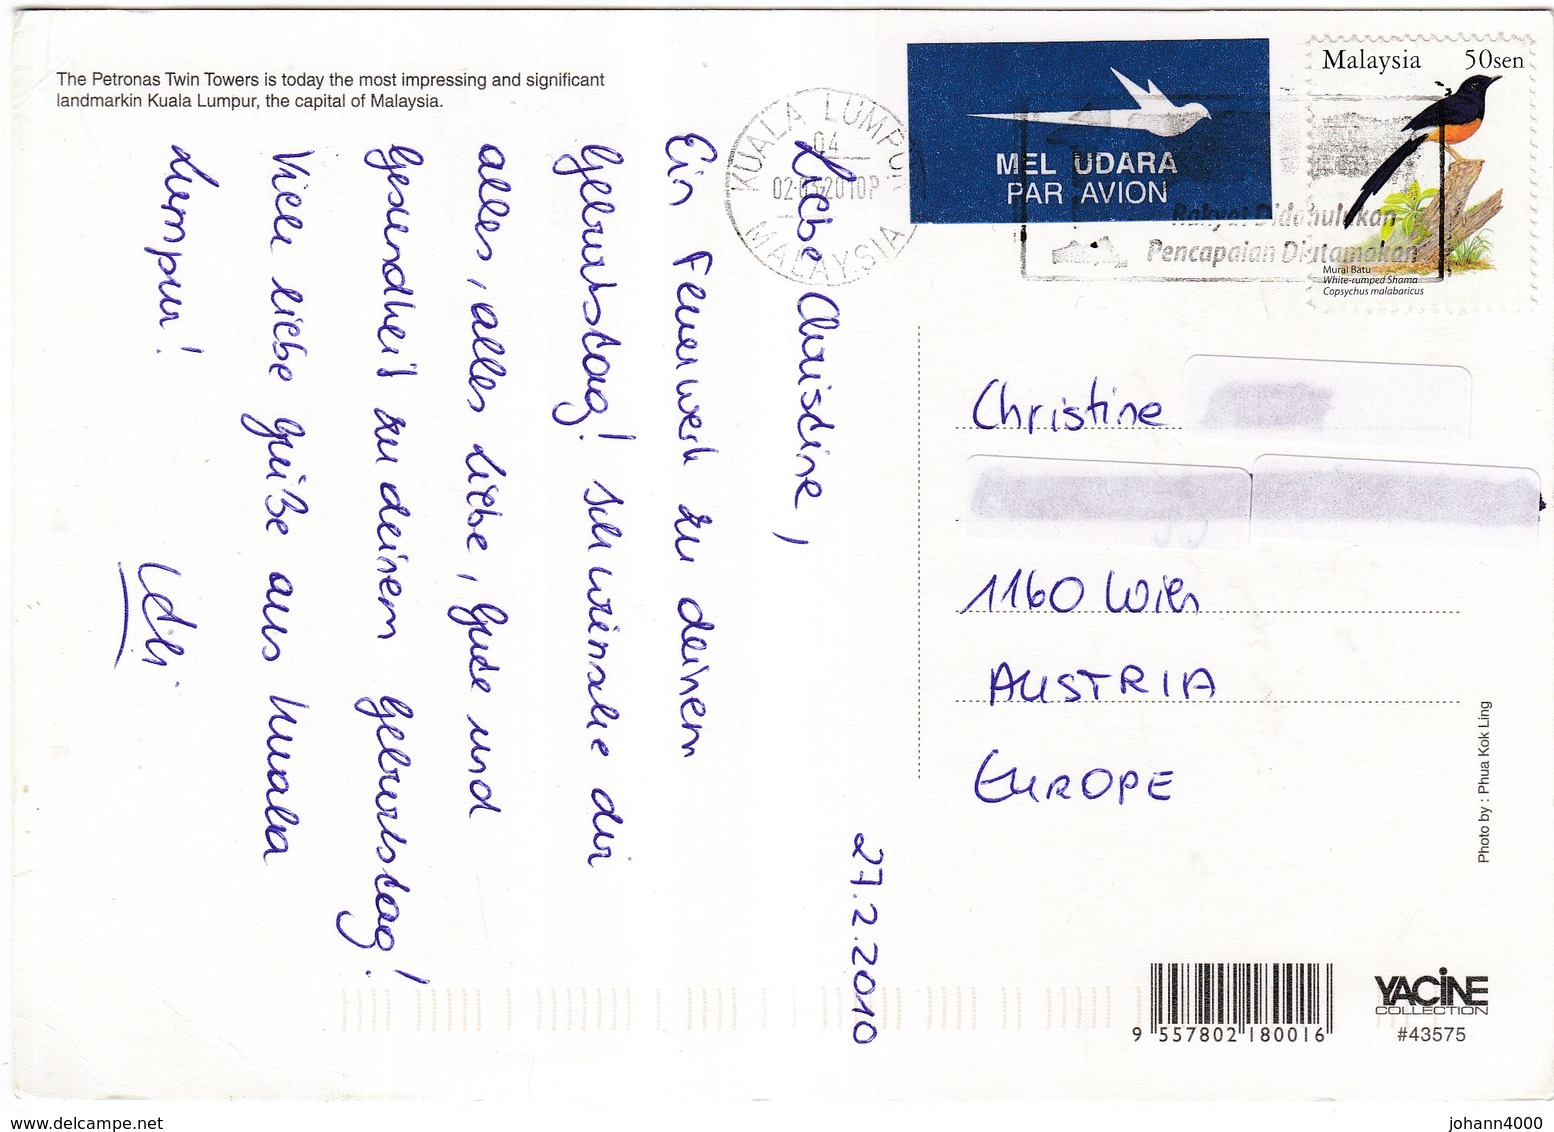 The Petronas Twin Towers is today the most impressing and significant
landmarkin Kuala Lumpur, the capital of Malaysia.
27.2.2010
Liebe Christine,
Ein Feuerwerk zu deinem
Geburtstag! Ich wünsche dir
alles, alles Liebe, Gute und
Gesundheit zu deinem Geburtstag!
Viele liebe Grüße aus Kuala
Lumpur!
KUALA LUMPUR
04
MALAYSIA
MEL UDARA
PAR AVION
Pencapaian Diutamakan
Malaysia 50sen
Murai Batu
White-rumped Shama
Copsychus malabaricus
Christine
1160 Wien
AUSTRIA
EUROPE
Photo by : Phua Kok Ling
9 557802 180016
YACINE
COLLECTION
#43575
www.delcampe.net
johann4000